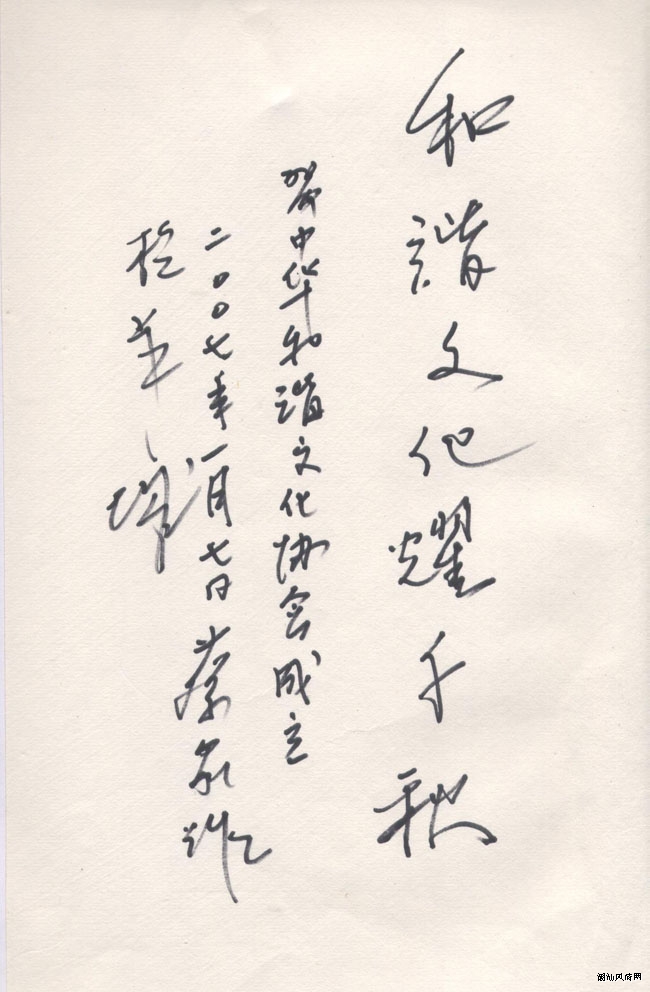 和谐文化耀千秋
贺中华和谐文化协会成立
二〇〇七年一月七日蔡家
於羊城
潮汕风情网